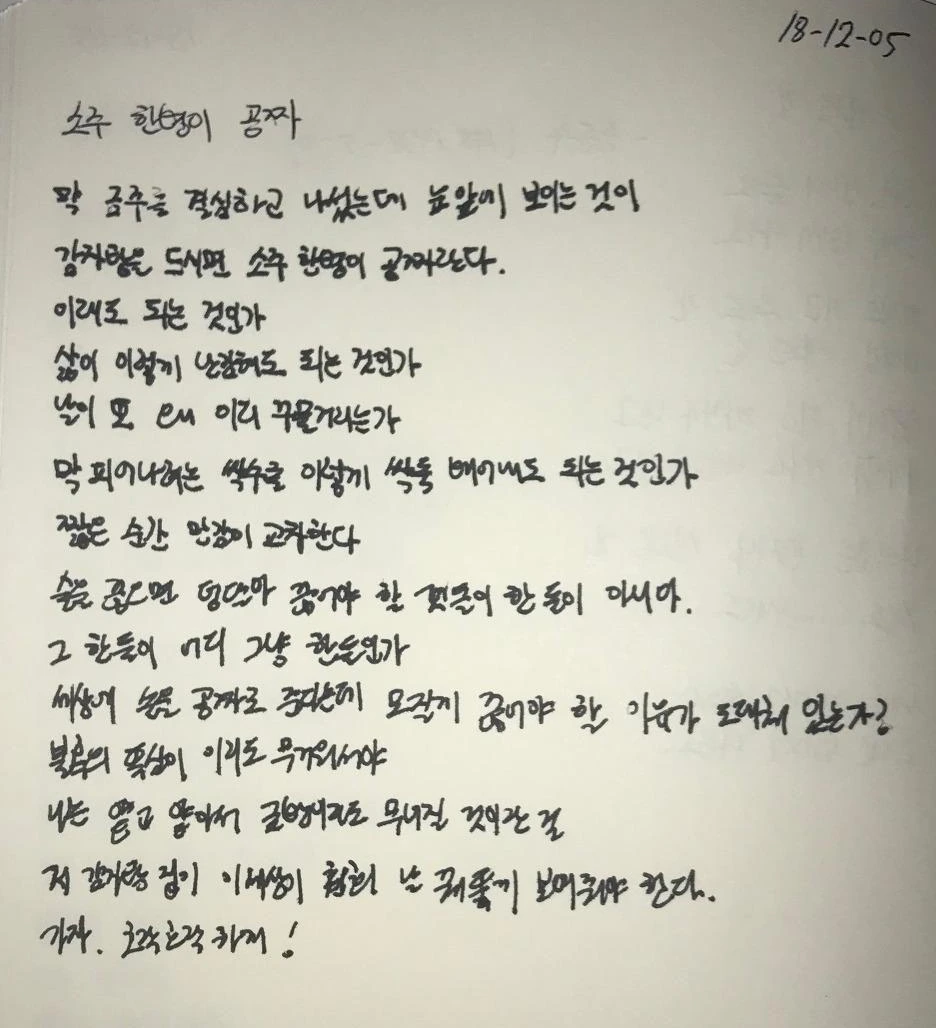 18-12-05
소주 한병이 공짜
막 금주를 결심하고 나섰는데 눈앞에 보이는 것이
감자탕을 드시면 소주 한병이 공짜란다.
이래도 되는 것인가
삶이 이렇게 난감해도 되는 것인가
날이 또 왜 이리 꾸물거리는가
막 피어나려는 싹수를 이렇게 싹둑 베어내도 되는 것인가
짧은 순간 만감이 교차한다
술을 끊으면 덩달아 끊어야 할 것들이 한둘이 아시아.
그 한둘이 어디 그냥 한둘인가
세상에 술을 공짜로 준다는데 모질게 끊어야 할 이유가 도대체 있는가?
불혹의 뚝심이 이리도 무거워서야
나는 얕고 얇아서 금방이라도 무너질 것이란 걸
저 감자탕 집이 이 세상이 훤히 날 꿰뚫게 보여줘야 한다.
가자. 호락호락하게!